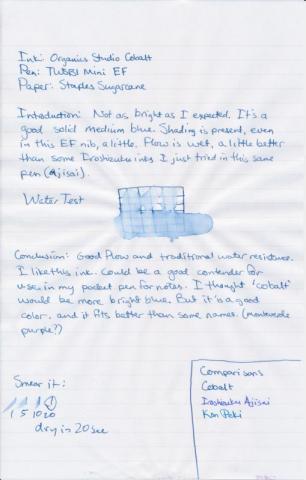 Ink: Organics Studio Cobalt
Pen: TWSBI Mini EF
Paper: Staples Sugarcane
Introduction: Not as bright as I expected. It's a
good solid medium blue. Shading is present, even
in this EF nib, a little. Flow is wet, a little better
than some Iroshizuku inks I just tried in this same
pen (Ajisai).
Water Test
Conclusion: Good flow and traditional water resistance.
I like this ink. Could be a good contender for
use in my pocket pen for notes. I thought 'cobalt'
would be more bright blue. But it is a good
color, and it fits better than some names. (monteverde
purple?)
Smear it:
1 5 10 20
dry in 20 sec
Comparisons
Cobalt
Iroshizuku Ajisai
Kon Peki